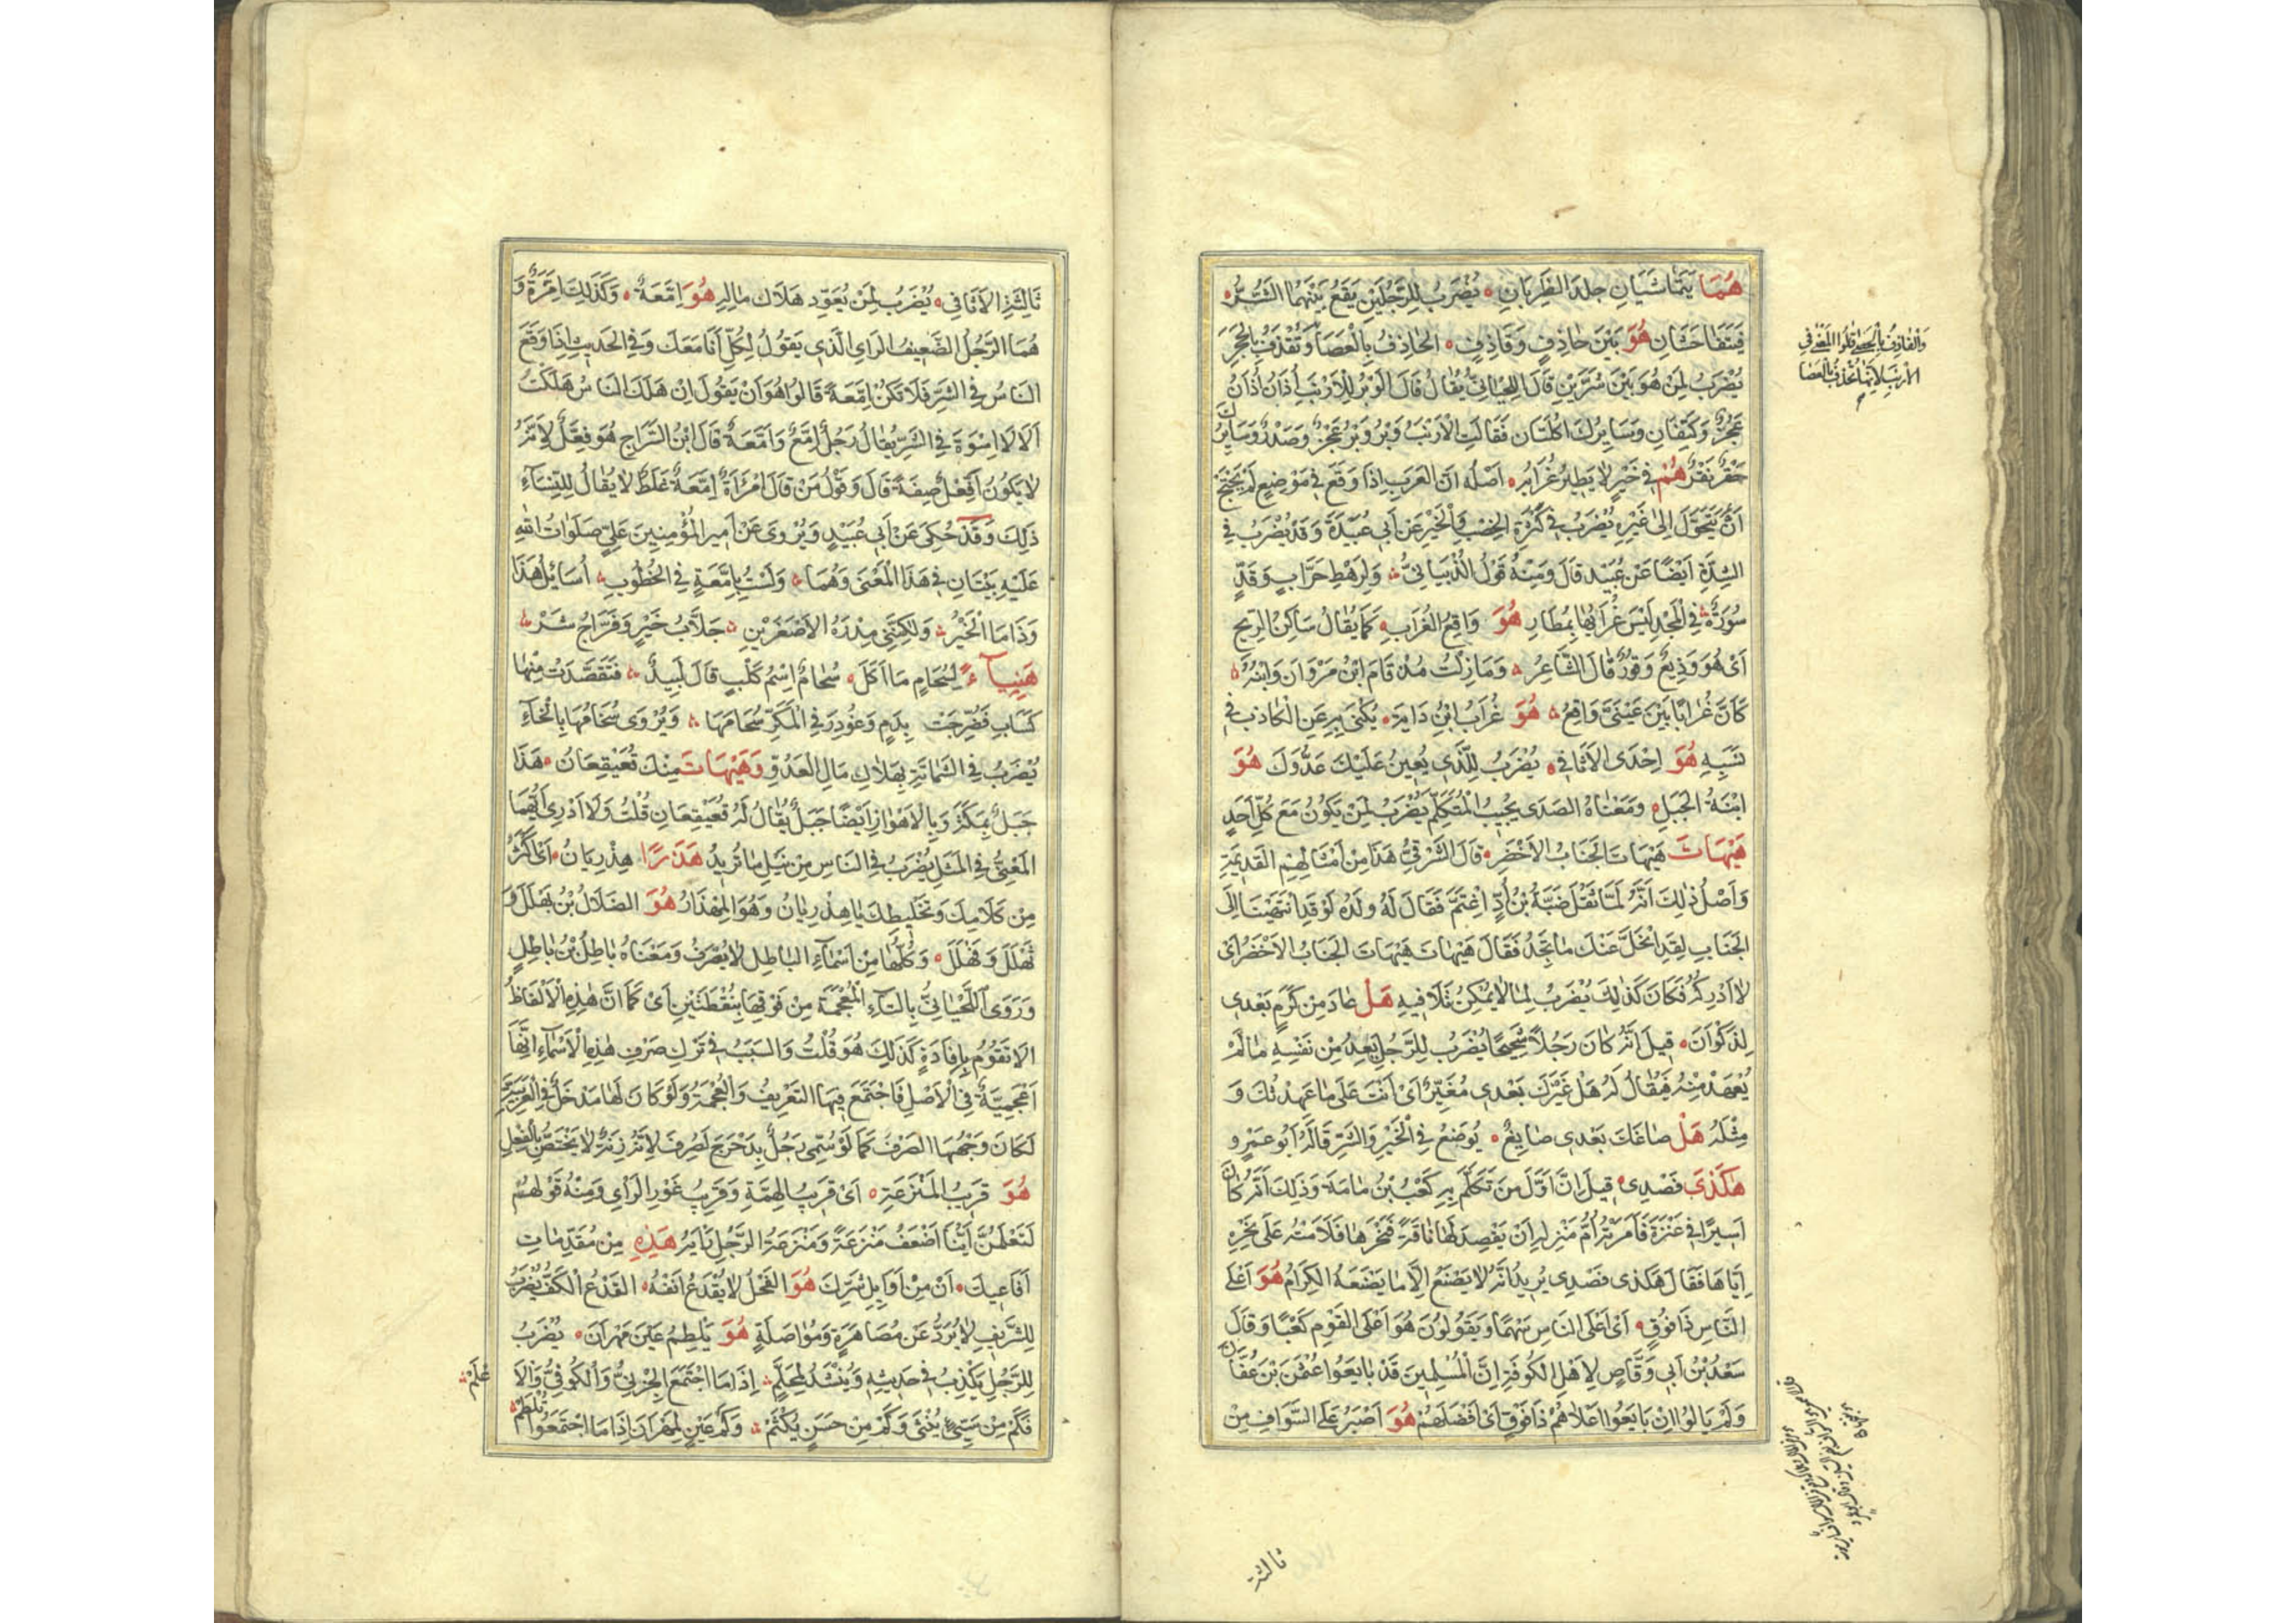 هُمَا يَتَمَاشَيَانِ جِلْدَ الظَّرِبَانِ يُضْرَبُ لِلرَّجُلَيْنِ يَقَعُ بَيْنَهُمَا الشَّرُّ
فَيَتَفَاحَشَانِ هُوَ بَيْنَ حَاذِفٍ وَقَاذِفٍ الحَاذِفُ بِالْعَصَا وَتُقْذَفُ بِالْحَجَرِ
يُضْرَبُ لِمَنْ هُوَ بَيْنَ شَرَّيْنِ قَالَ اللِّحْيَانِيُّ يُقَالُ قَالَ الْوَبْرُ لِلْأَرْنَبِ أُذَانُ أُذَانُ
عَجُزٌ وَكَتِفَانِ وَسَايِرُكَ أُكْلَتَانِ فَقَالَتِ الْأَرْنَبُ وَبْرُ وَبْرُ عَجُزٌ وَصَدْرٌ وَسَايِرُكَ
حَقْرٌ نَقْرٌ هُمْ فِي خَيْرٍ لَا يَطِيرُ غُرَابُهُ أَصْلُهُ أَنَّ الغُرَابَ إِذَا وَقَعَ فِي مَوْضِعٍ لَمْ يَحْتَجْ
أَنْ يَتَحَوَّلَ إِلَى غَيْرِهِ يُضْرَبُ فِي كَثْرَةِ الخِصْبِ وَالْخَيْرِ عَنْ أَبِي عُبَيْدَةَ وَقَدْ يُضْرَبُ فِي
الشِّدَّةِ أَيْضًا عَنْ عُبَيْد قَالَ وَمِنْهُ قَوْلُ الذُّبْيَانِيُّ وَلِرَهْطِ حَرَّابٍ وَقَدٍّ
سُورَةٌ فِي الْمَجْدِ لَيْسَ غُرَابُهَا بِمُطَارِ هُوَ وَاقِعُ الغُرَابِ كَمَا يُقَالُ سَاكِنُ الرِّيحِ
أَيْ هُوَ وَدِيعٌ وَقُورٌ قَالَ الشَّاعِرُ وَمَا زِلْتُ مُذْ قَامَ ابْنُ مَرْوَانَ وَابْنُهُ
كَأَنَّ غُرَابًا بَيْنَ عَيْنَيَّ وَاقِعُ هُوَ غُرَابُ ابْنُ دَايَةَ يُكْنَى بِهِ عَنِ الْكَاذِبِ فِي
نَسَبِهِ هُوَ إِحْدَى الْأَثَافِي يُضْرَبُ لِلَّذِي يُعِينُ عَلَيْكَ عَدُوَّكَ هُوَ
ابْنَةُ الجَبَلِ وَمَعْنَاهُ الصَّدَى يُجِيبُ الْمُتَكَلِّمَ يُضْرَبُ لِمَنْ يَكُونُ مَعَ كُلِّ أَحَدٍ
هَيْهَاتَ هَيْهَاتَ الجَنَابُ الْأَخْضَرِ قَالَ الشَّرْقِيُّ هَذَا مِنْ أَمْثَالِهِمُ القَدِيمَةِ
وَأَصْلُ ذٰلِكَ أَنَّهُ لَمَّا ثَقُلَ ضَبَّةُ بْنُ أُدٍّ اغْتَمَّ فَقَالَ لَهُ وَلَدُهُ لَوْ قَدِ انْتَهَيْنَا إِلَى
الجَنَابِ لَقَدِ انْحَلَّ عَنْكَ مَا تَجِدُ فَقَالَ هَيْهَاتَ هَيْهَاتَ الجَنَابُ الْأَخْضَرُ أَيْ
لَا أُدْرِكُهُ فَكَانَ كَذَلِكَ يُضْرَبُ لِمَا لَا يُمْكِنُ تَلَافِيهِ هَلْ عَادَ مِنْ كَرَمٍ بَعْدِي
لِذَكْوَانَ قِيلَ أَنَّهُ كَانَ رَجُلًا شَحِيحًا يُضْرَبُ لِلرَّجُلِ يَعِدُ مِنْ نَفْسِهِ مَا لَمْ
يُعْهَدْ مِنْهُ فَيُقَالُ لَهُ هَلْ غَيَّرَكَ بَعْدِي مُغَيِّرٌ أَيْ أَنْتَ عَلَى مَا عَهِدْتُكَ وَ
مِثْلُهُ هَلْ صَاغَكَ بَعْدِي صَايِغٌ يُوضَعُ فِي الْخَيْرِ وَالشَّرِّ قَالَهُ أَبُو عَمْرٍو
هَكَذَى فَصْدِي قِيلَ إِنَّ أَوَّلَ مَنْ تَكَلَّمَ بِهِ كَعْبُ بْنُ مَامَةَ وَذَلِكَ أَنَّهُ كَانَ
أَسِيرًا فِي عَنَزَةَ فَأَمَرَتْهُ أُمُّ مَنْزِلِهِ أَنْ يَفْصِدَ لَهَا نَاقَةً فَنَحَرَهَا فَلَامَتْهُ عَلَى نَحْرِهِ
إِيَّاهَا فَقَالَ هَكَذَى فَصْدِي يُرِيدُ أَنَّهُ لَا يَصْنَعُ إِلَّا مَا يَصْنَعُهُ الكِرَامُ هُوَ أَعْلَى
النَّاسِ ذَا فُوقٍ أَيْ أَعْلَى النَّاسِ سَهْمًا وَيَقُولُونَ هُوَ أَعْلَى القَوْمِ كَعْبًا وَقَالَ
سَعْدُ بْنُ أَبِي وَقَّاصٍ لِأَهْلِ الكُوفَةِ إِنَّ الْمُسْلِمِينَ قَدْ بَايَعُوا عُثْمَنَ بْنَ عَفَّانَ
وَلَمْ يَالُوا إِنْ بَايَعُوا أَعْلَاهُمْ ذَا فُوقٍ أَيْ أَفْضَلَهُمْ هُوَ أَصْبَرُ عَلَى السَّوَافِ مِنْ
وَالْقَاذِفُ بِالْحَصَى قَالُوا اللُّغَى فِي
الأَرْنَبِ لِأَنَّهَا تُحْذَفُ بِالْعَصَا
ثالثة
ثَالِثَةِ الْأَثَافِي يُضْرَبُ لِمَنْ يُعَوِّد هَلَاكَ مَالِهِ هُوَ إِمَّعَةٌ وَكَذَلِكَ إِمَّرَةٌ وَ
هُمَا الرَّجُلُ الضَّعِيفُ الرَّايِ الَّذِي يَقُولُ لِكُلٍّ أَنَا مَعَكَ وَفِي الحَدِيثِ إِذَا وَقَعَ
النَّاسُ فِي الشَّرِّ فَلَا تَكُنْ إِمَّعَةً قَالُوا هُوَ أَنْ يَقُولَ إِنْ هَلَكَ النَّاسُ هَلَكْتُ
أَلَا لَا إِسْوَةَ فِي الشَّرِّ يُقَالُ رَجُلٌ إِمَّعٌ وَإِمَّعَةٌ قَالَ ابْنُ السَّرَّاجِ هُوَ فِعَّلٌ لِأَنَّهُ
لَا يَكُونُ أَفْعَلُ صِفَةً قَالَ وَقَوْلُ مَنْ قَالَ امْرَأَةٌ إِمَّعَةٌ غَلَطٌ لَا يُقَالُ لِلنِّسَآءِ
ذَلِكَ وَقَدْ حُكِيَ عَنْ أَبِي عُبَيْدٍ وَيُرْوَى عَنْ أَمِيرِ الْمُؤْمِنِينَ عَلِيٍّ صَلَوَاتُ اللهِ
عَلَيْهِ بَيْتَانِ فِي هَذَا الْمَعْنَى وَهُمَا وَلَسْتُ بِإِمَّعَةٍ فِي الخُطُوبِ أُسَائِلُ هَذَا
وَذَا مَا الْخَبَرُ وَلَكِنَّنِي مِدْرَهُ الْأَصْغَرَيْنِ جَلَّابُ خَيْرٍ وَفَرَّاجُ شَرْ
هَنِيآءً لِسُحَامٍ مَا أَكَلَ سُحَامٌ اِسْمُ كَلْبٍ قَالَ لَبِيدٌ فَتَقَصَّدَتْ مِنْهَا
كَسَابِ فَضُرِّجَتْ بِدَمٍ وَغُودِرَ فِي الْمَكَرِّ سُحَامُهَا وَيُرْوَى سُخَامُهَا بِالْخَآءِ
يُضْرَبُ فِي الشَّمَاتَةِ بِهَلَاكِ مَالِ الْعَدُوِّ وَهَيْهَاتَ مِنْكَ قُعَيْقِعَانُ هَذَا
جَبَلٌ بِمَكَّةَ وَبِالْأَهْوَازِ أَيْضًا جَبَلٌ يُقَالُ لَهُ قُعَيْقِعَانِ قُلْتُ وَلَا أَدْرِي أَيُّهُمَا
الْمَعْنِيُّ فِي الْمَثَلِ يُضْرَبُ فِي الْيَاسِ مِنْ نَيْلِ مَا تُرِيدُ هَذْرًا هِذْرِيَانُ أَيْ أَكْثَرُ
مِنْ كَلَامِكَ وَتَخْلِيطِكَ يَا هِذْرِيَانُ وَهُوَ الْمِهْذَارُ هُوَ الضَّلَالُ بْنُ بَهْلَلَ وَ
ثَهْلَلَ وَفَهْلَلَ وَكُلُّهَا مِنْ أَسْمَآءِ البَاطِلِ لَا يُصْرَفُ وَمَعْنَاهُ بَاطِلُ بْنُ بَاطِلٍ
وَرَوَى اللِّحْيَانِيُّ بِالتَّآءِ الْمُعْجَمَةِ مِنْ فَوْقِهَا بِنُقْطَتَيْنِ أَيْ كَمَا أَنَّ هَذِهِ الْأَلْفَاظُ
لَا تَقُومُ بِإِفَادَةٍ كَذَلِكَ هُوَ قُلْتُ وَالسَّبَبُ فِي تَرْكِ صَرْفِ هَذِهِ الْأَسْمَآءِ أَنَّهَا
أَعْجَمِيَّةٌ فِي الْأَصْلِ فَاجْتَمَعَ فِيهَا التَّعْرِيفُ وَالْعُجْمَةُ وَلَوْ كَانَ لَهَا مَدْخَلٌ فِي الْعَرَبِيَّةِ
لَكَانَ وَجْهُهَا الصَّرْفَ كَمَا لَوْ سُمِّيَ رَجُلٌ بِدَحْرَجَ لَصُرِفَ لِأَنَّهُ زِنَةٌ لَا يَخْتَصُّ بِالْفِعْلِ
هُوَ قَرِيبُ الْمَنْزَعَةِ أَيْ قَرِيبُ الهِمَّةِ وَقَرِيبُ غَوْرِ الرَّأْيِ وَمِنْهُ قَوْلُهُمْ
لَتَعْلَمَنَّ أَيُّنَا أَضْعَفُ مَنْزَعَةً وَمَنْزَعَةُ الرَّجُلِ رَأْيُهُ هَذِهِ مِنْ مُقَدِّمَاتِ
أَفَاعِيكَ أَيْ مِنْ أَوَايِلِ شَرِّكَ هُوَ الفَحْلُ لَا يُقْدَعُ أَنْفُهُ القَدْعُ الْكَفُّ يُضْرَبُ
لِلشَّرِيفِ لَا يُرَدُّ عَنْ مُصَاهَرَةٍ وَمُوَاصَلَةٍ هُوَ يَلْطِمُ عَيْنَ مِهْرَانَ يُضْرَبُ
لِلرَّجُلِ يَكْذِبُ فِي حَدِيثِهِ وَيُنْشَدُ إِذَا مَا اجْتَمَعَ
فَكَمْ مِنْ سَيِّئٍ يُنْثَى وَكَمْ مِنْ حَسَنٍ يُكْتَمْ وَكَمْ عَيْنٍ لِمِهْرَانَ إِذَا مَا اجْتَمَعُوا تُلْطَمْ